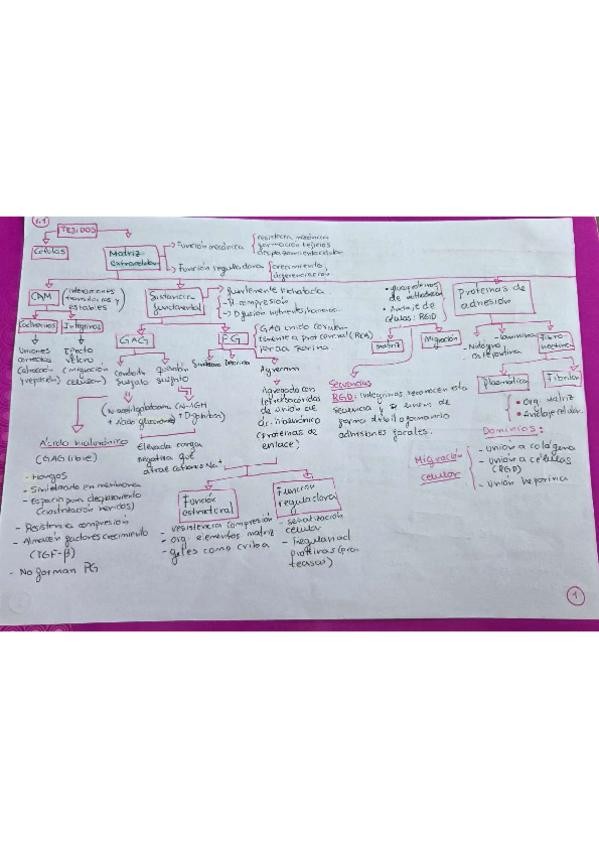 1.1
TEJIDOS
Células
Matriz
extracelular
→ Función mecánica
resistencia mecánica
formación tejidos
desplazamiento celular
→ Función reguladora
crecimiento
diferenciación
CAM
(interacciones
transitorias y
estables)
Cadherinas
Integrinas
Uniones
estrechas
(atracción
y repulsión)
Efecto
velcro
(migración
celular)
Sustancia
fundamental
→ fuertemente hidratada
→ R. compresión
→ Difusión nutrientes, hormonas
GAG
PG
GAG unido covalen-
temente a prot central (
Condroitín
sulfato
queratán
sulfato
Sindecano
Decorina
Agrecano
Agregado con
de unión al
ác. hialurónico
(Proteínas de
enlace)
Ácido hialurónico
(GAG libre)
Elevada carga
negativa que
atrae cationes Na+
- Hongos
- Sintetizado en membrana
- Espacio para desplazamiento
(cicatrización heridas)
- Resistencia compresión
- Almacén factores crecimiento
(TGF-β)
- No forman PG
Función
estructural
- resistencia compresión
- org. elementos matriz
- geles como criba
Función
reguladora
- señalización
celular
- Regular act
proteínas (pro-
teasas)
Proteínas de
adhesión
• glucoproteínas
de adhesión
• Anclaje de
células: RGD
Matriz
Migración
- laminina
- Nidógeno
- Osteopontina
Fibro
nectina
Plasmática
Fibrilar
• Org. matriz
• Anclaje celular
Secuencias
RGD: integrinas reconocen esta
secuencia y se unen de
forma débil formando
adhesiones focales.
Migración
celular
Dominios:
- Unión a colágeno
- Unión a células
(RGD)
- Unión heparina
1